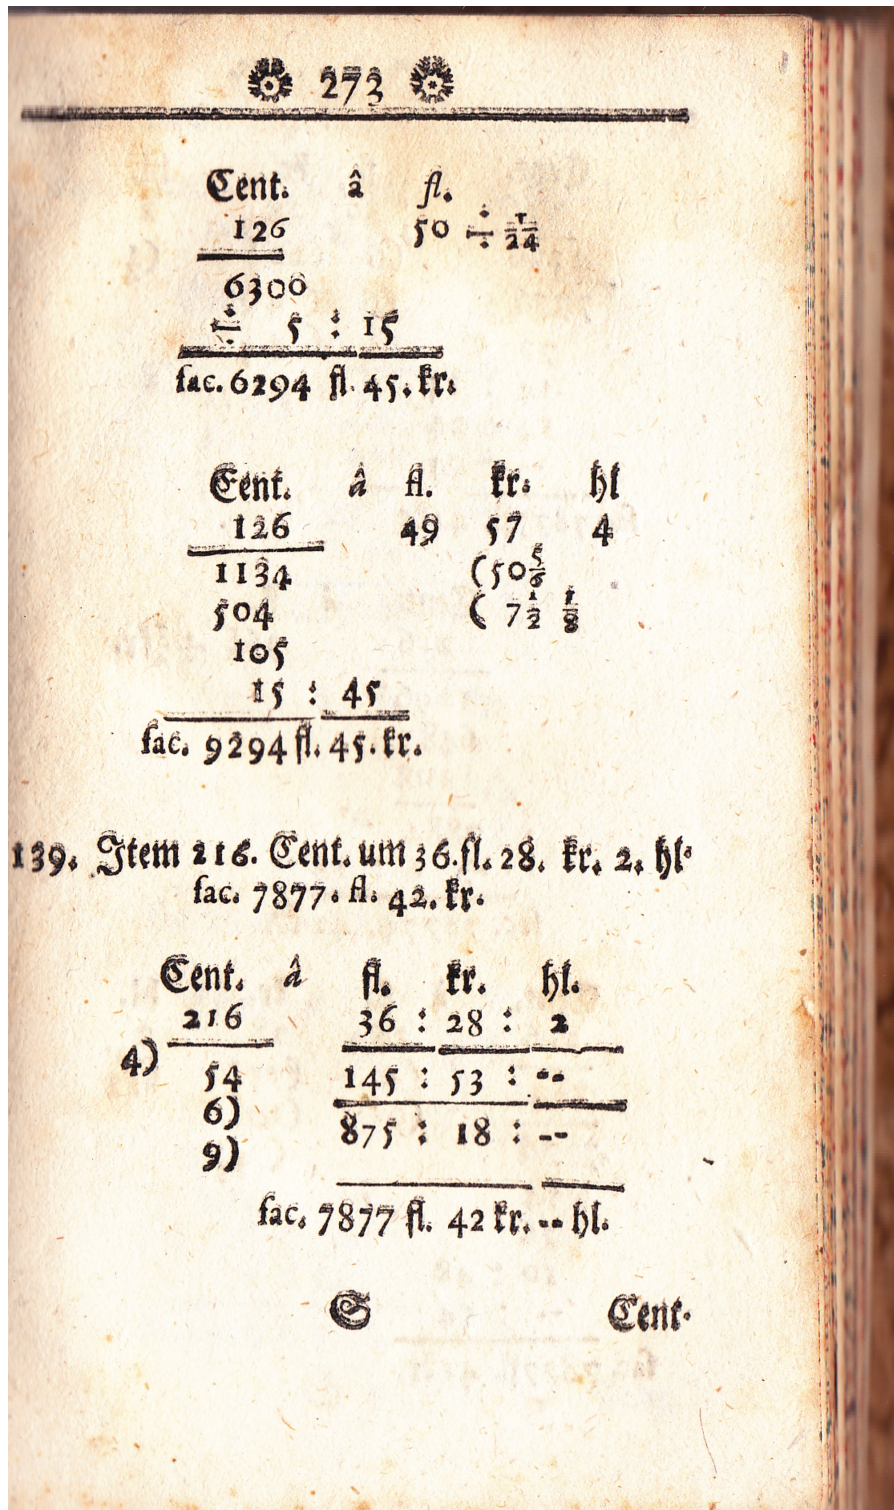 273
Cent. â fl.
126 50 ÷ 1/24
6300
÷ 5 : 15
fac. 6294 fl. 45. kr.
Cent. â fl. kr. hl
126 49 57 4
1134 (50 5/6
504 ( 7 1/2 1/8
105
15 : 45
fac. 9294 fl. 45. kr.
139. Item 216. Cent. um 36. fl. 28. kr. 2. hl.
fac. 7877. fl. 42. kr.
Cent. â fl. kr. hl.
216 36 : 28 : 2
4) 54 145 : 53 : --
6) 875 : 18 : --
9)
fac. 7877 fl. 42 kr. -- hl.
S Cent.